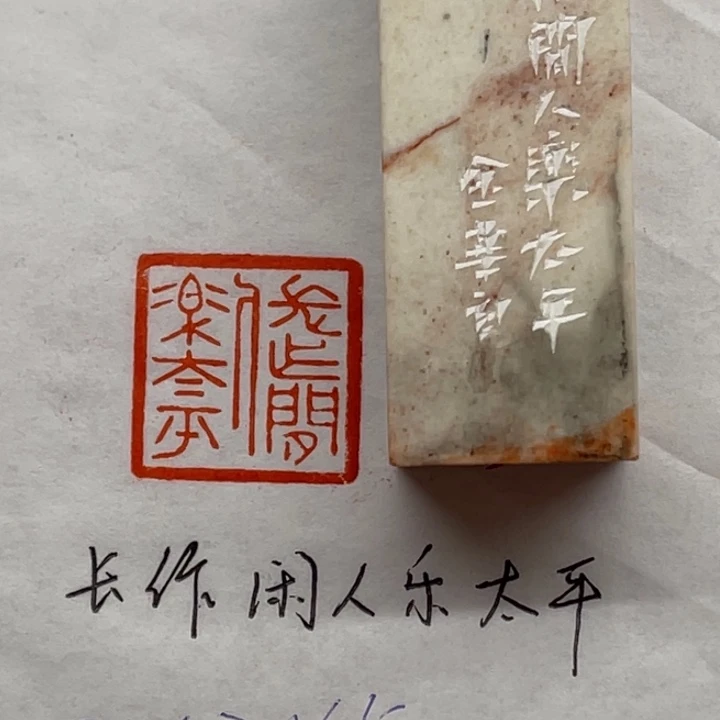 長作閒人樂太平
閒人樂太平
金華
长作闲人乐太平